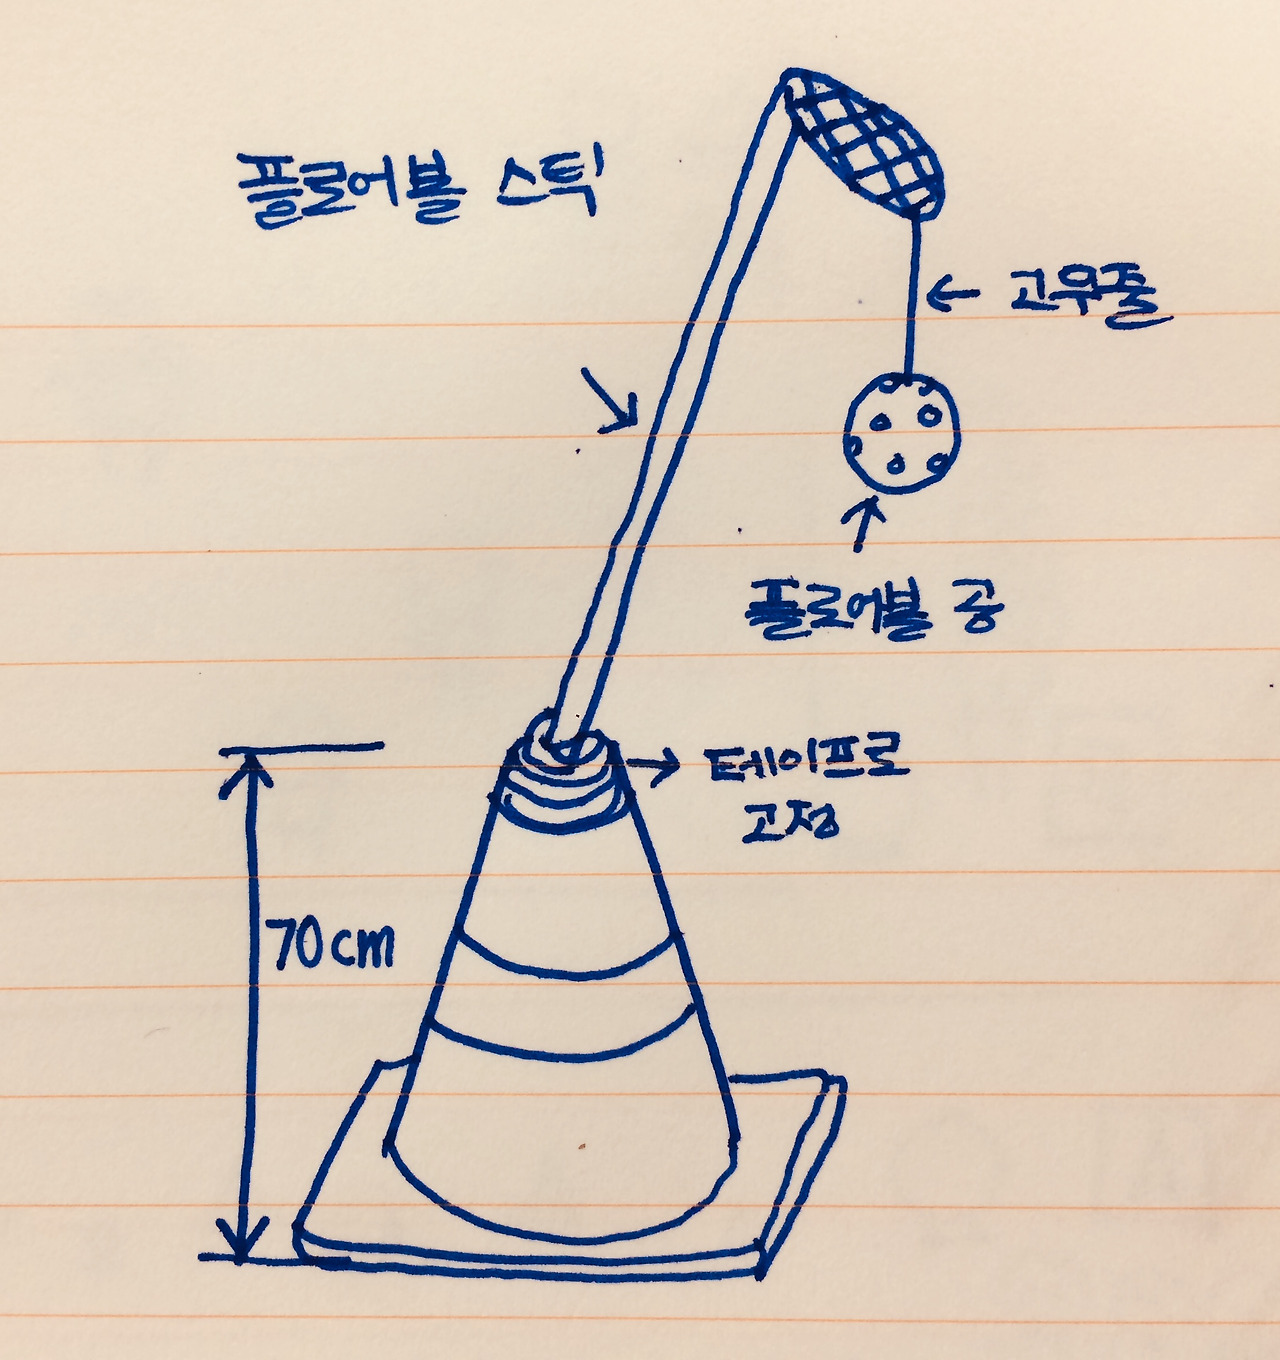 플로어볼 스틱
고무줄
플로어볼 공
테이프로
고정
70cm